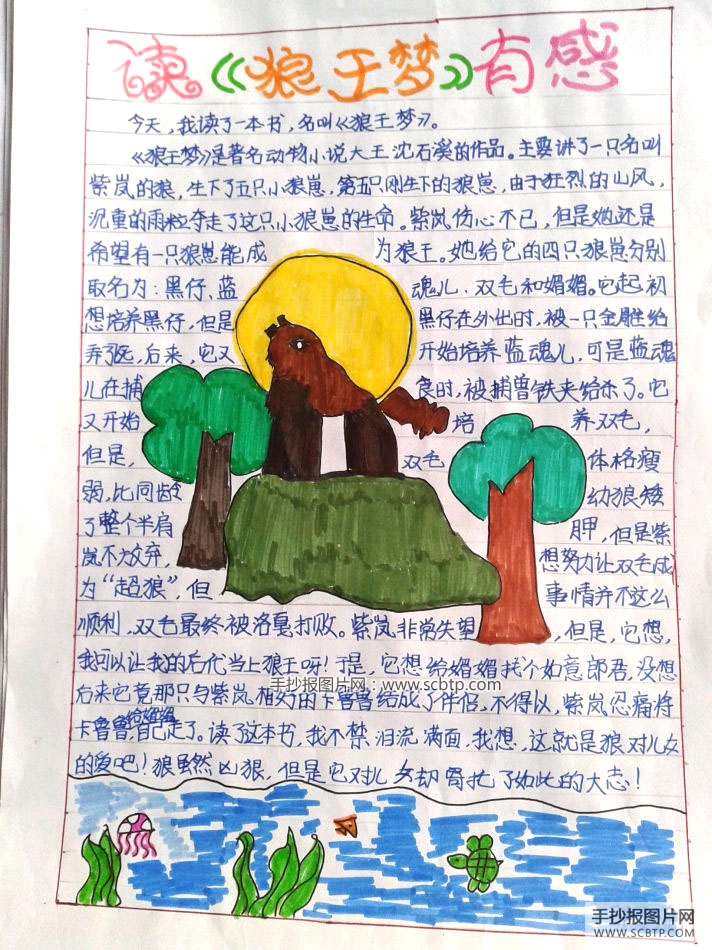 读《狼王梦》有感
今天,我读了一本书,名叫《狼王梦》。
《狼王梦》是著名动物小说大王沈石溪的作品。主要讲了一只名叫
紫岚的狼,生下了五只小狼崽,第五只刚生下的狼崽,由于狂烈的山风,
沉重的雨粒夺走了这只小狼崽的生命。紫岚伤心不已,但是她还是
希望有一只狼崽能成为狼王。她给它的四只狼崽分别
取名为:黑仔,蓝魂儿.双毛和媚媚。它起初
想培养黑仔,但是黑仔在外出时,被一只金雕给
弄死,后来,它又开始培养蓝魂儿,可是蓝魂
儿在捕食时,被捕兽铁夹给杀了。它
又开始培养双毛,
但是,双毛体格瘦
弱,比同龄幼狼矮
了整个半肩胛,但是紫
岚不放弃,想努力让双毛成
为“超狼”,但事情并不这么
顺利,双毛最终被洛戛打败。紫岚非常失望,但是,它想,
我可以让我的后代当上狼王呀!于是,它想给媚媚找个如意郎君,没想
手抄报图片网:www.scbtp.com
后来它竟那只与紫岚相好的卡鲁鲁结成了伴侣,不得以,紫岚忍痛将
卡鲁鲁给媚媚,自己走了。读了这本书,我不禁泪流满面,我想,这就是狼对儿女
的爱吧!狼虽然凶狠,但是它对儿女却寄托了如此的大志!
手抄报图片网
WWW.SCBTP.COM